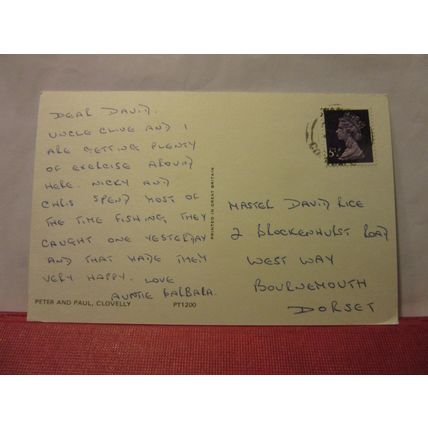 DEAR DAVID.
UNCLE CLIVE AND I
ARE GETTING PLENTY
OF EXERCISE AROUND
HERE. NICKY AND
CHRIS SPEND MOST OF
THE TIME FISHING, THEY
CAUGHT ONE YESTERDAY
AND THAT MADE THEY
VERY HAPPY. LOVE
AUNTIE BARBARA.
PETER AND PAUL, CLOVELLY PT1200
PRINTED IN GREAT BRITAIN
MASTER DAVID RICE
2 BROCKENHURST ROAD
WEST WAY
BOURNEMOUTH
DORSET